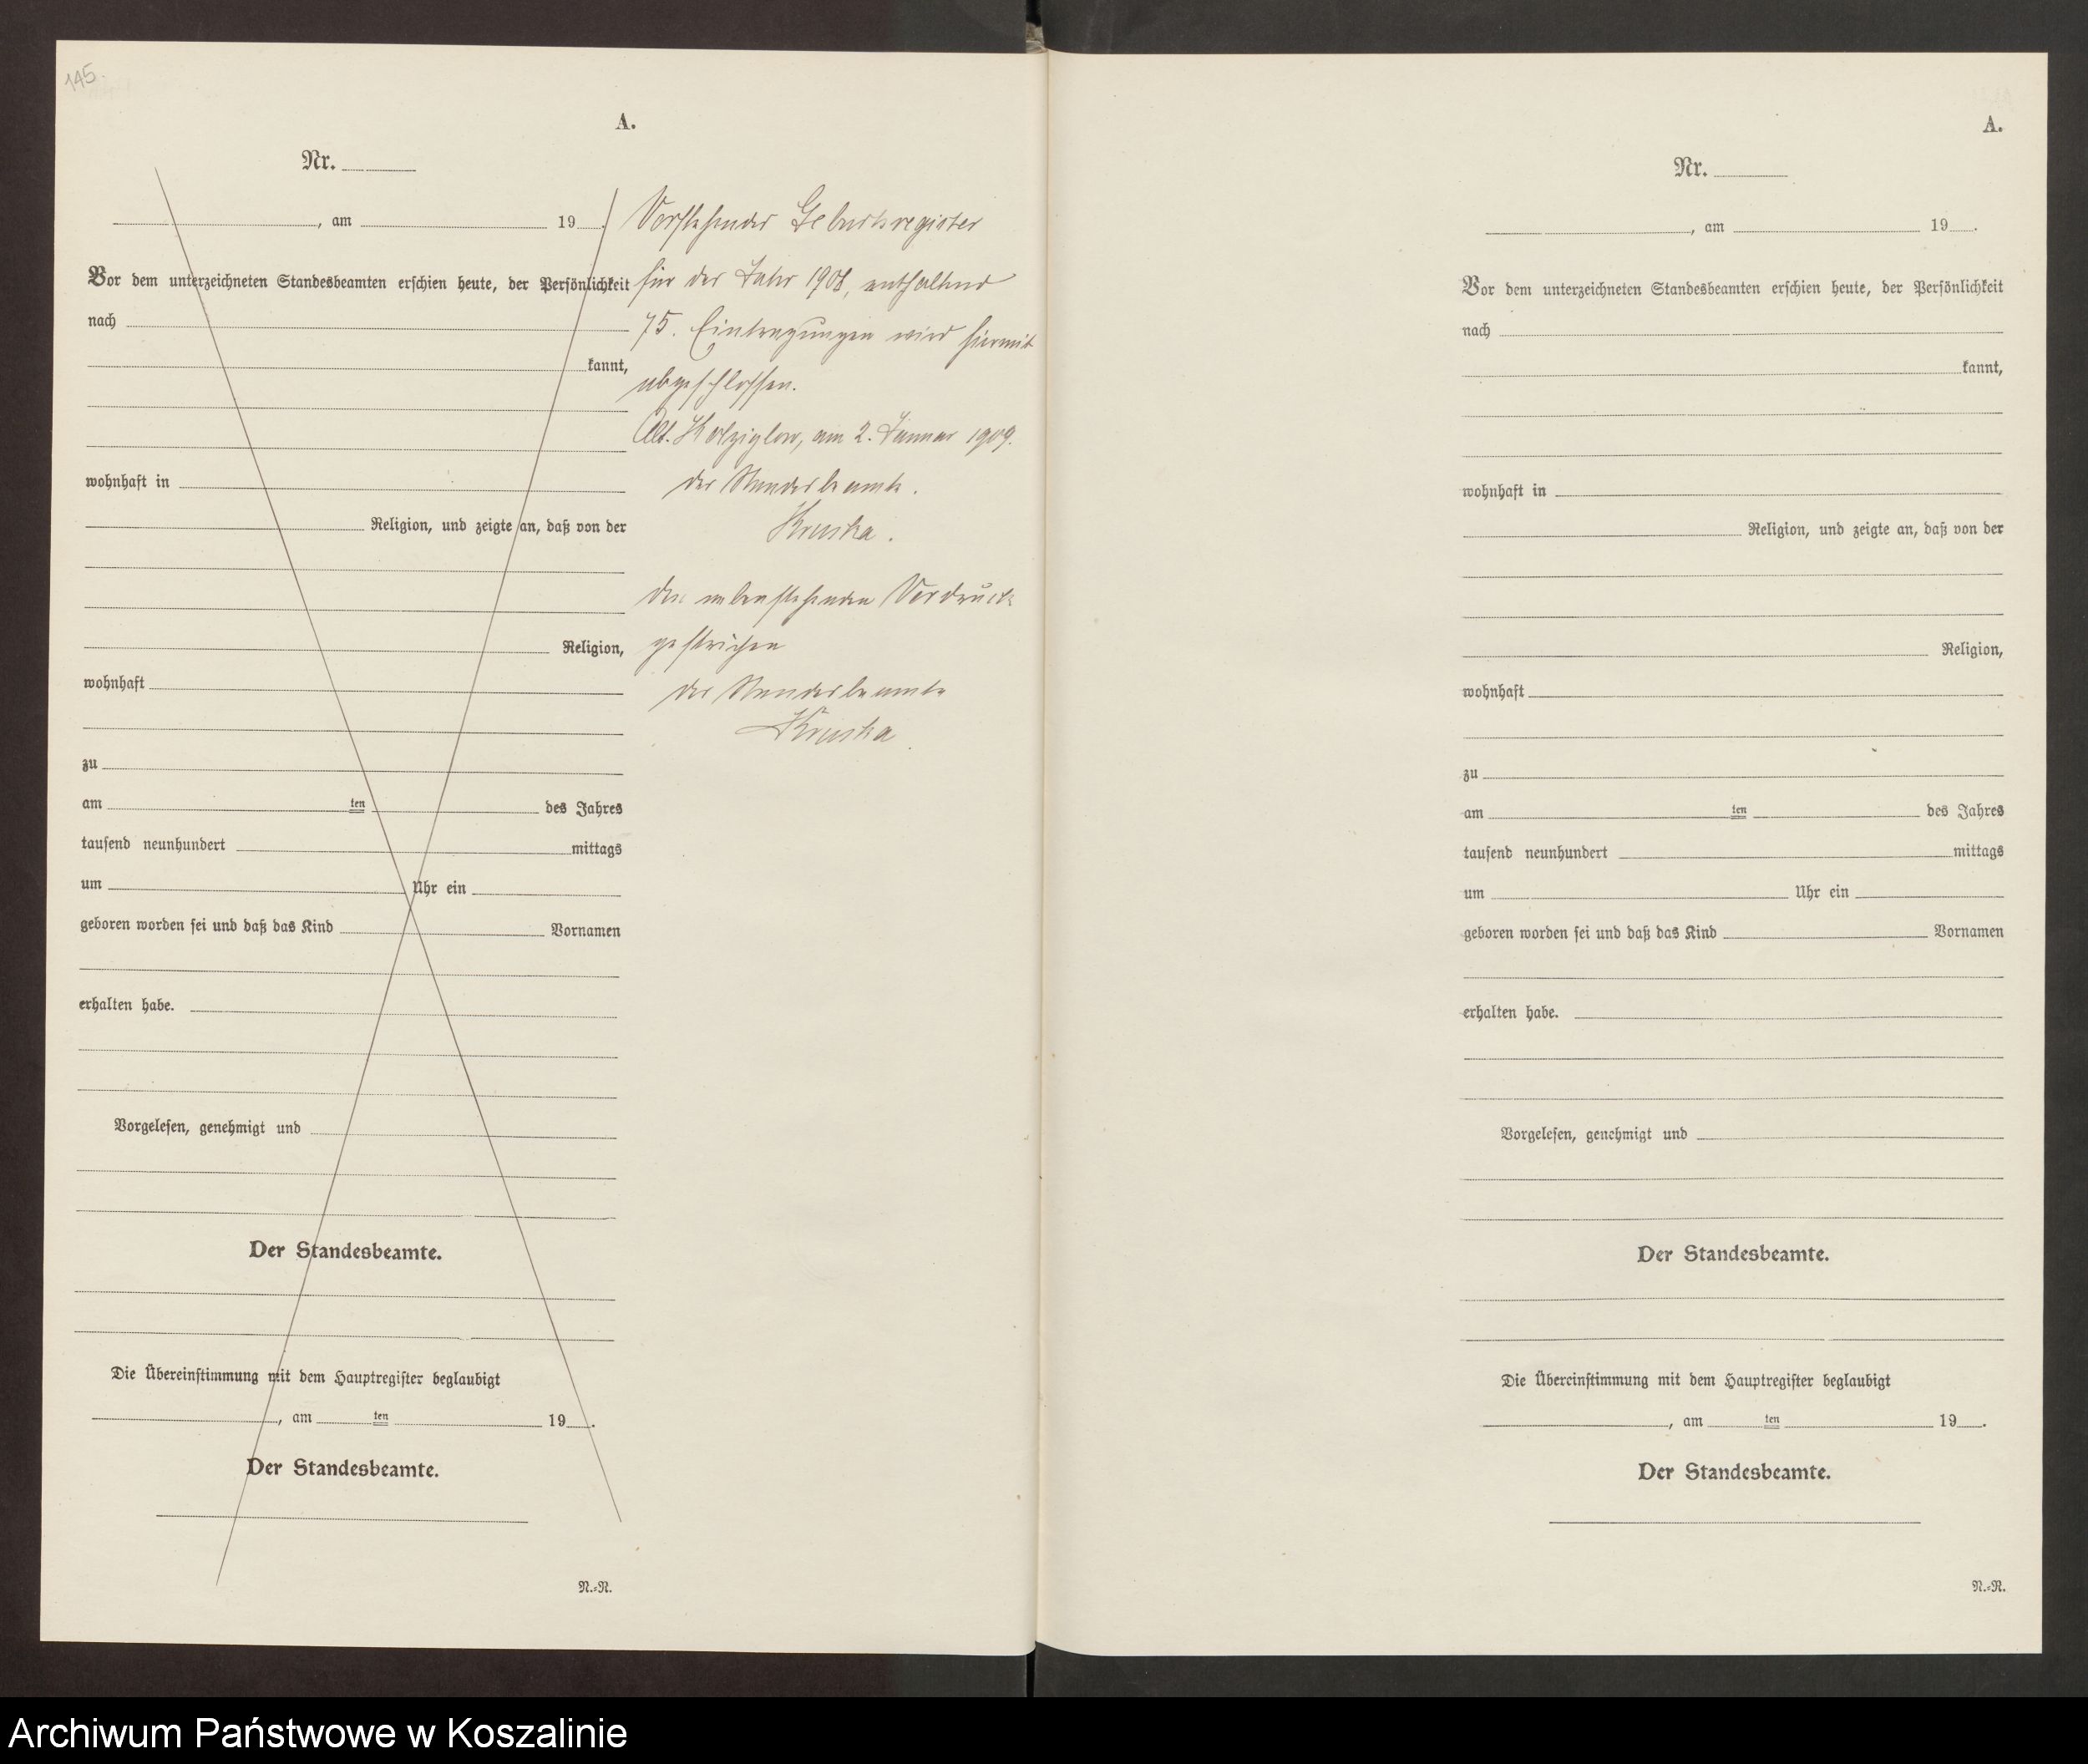 145.
A.
Nr.
, am 19 .
Vor dem unterzeichneten Standesbeamten erschien heute, der Persönlichkeit
nach
kannt,
wohnhaft in
Religion, und zeigte an, daß von der
Religion,
wohnhaft
zu
am ten des Jahres
tausend neunhundert mittags
um Uhr ein
geboren worden sei und daß das Kind Vornamen
erhalten habe.
Vorgelesen, genehmigt und
Der Standesbeamte.
Die Übereinstimmung mit dem Hauptregister beglaubigt
, am ten 19 .
Der Standesbeamte.
N.=R.
Vorstehendes Geburtsregister
für das Jahr 1908, enthaltend
75. Eintragungen wird hiermit
abgeschlossen.
Alt. Kolziglow, am 2. Januar 1909.
der Standesbeamte.
den nebenstehenden Vordruck
gestrichen
der Standesbeamte
A.
Nr.
, am 19 .
Vor dem unterzeichneten Standesbeamten erschien heute, der Persönlichkeit
nach
kannt,
wohnhaft in
Religion, und zeigte an, daß von der
Religion,
wohnhaft
zu
am ten des Jahres
tausend neunhundert mittags
um Uhr ein
geboren worden sei und daß das Kind Vornamen
erhalten habe.
Vorgelesen, genehmigt und
Der Standesbeamte.
Die Übereinstimmung mit dem Hauptregister beglaubigt
, am ten 19 .
Der Standesbeamte.
N.=R.
Archiwum Państwowe w Koszalinie